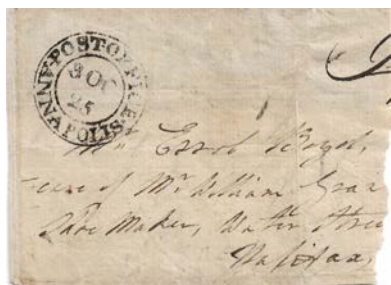 POST OFFICE ANNAPOLIS
3 OC
25
Mr Errol Boyd,
care of Mr William Gray
Shoe Maker, Water Stree
Halifax.